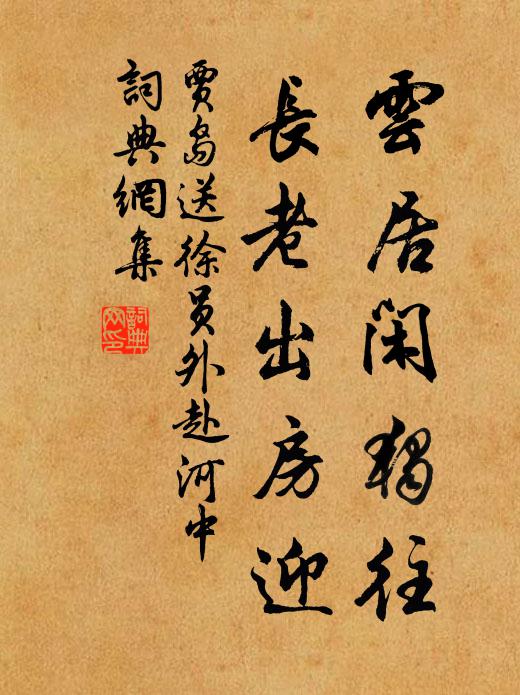 雲居閑獨往
長老出房迎
賈島送徐員外赴河中
詞典網集
詞典網印